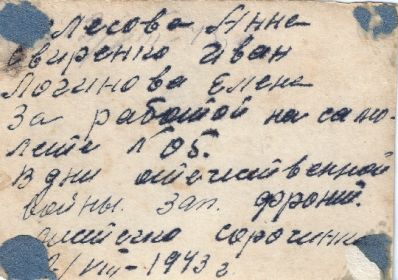 лесова Анна
Свиренко Иван
Логинова Елена
За работой на само-
лете № 05.
В дни отечественной
войны. Зап. фронт.
местечко сорочин
/VIII-1943 г